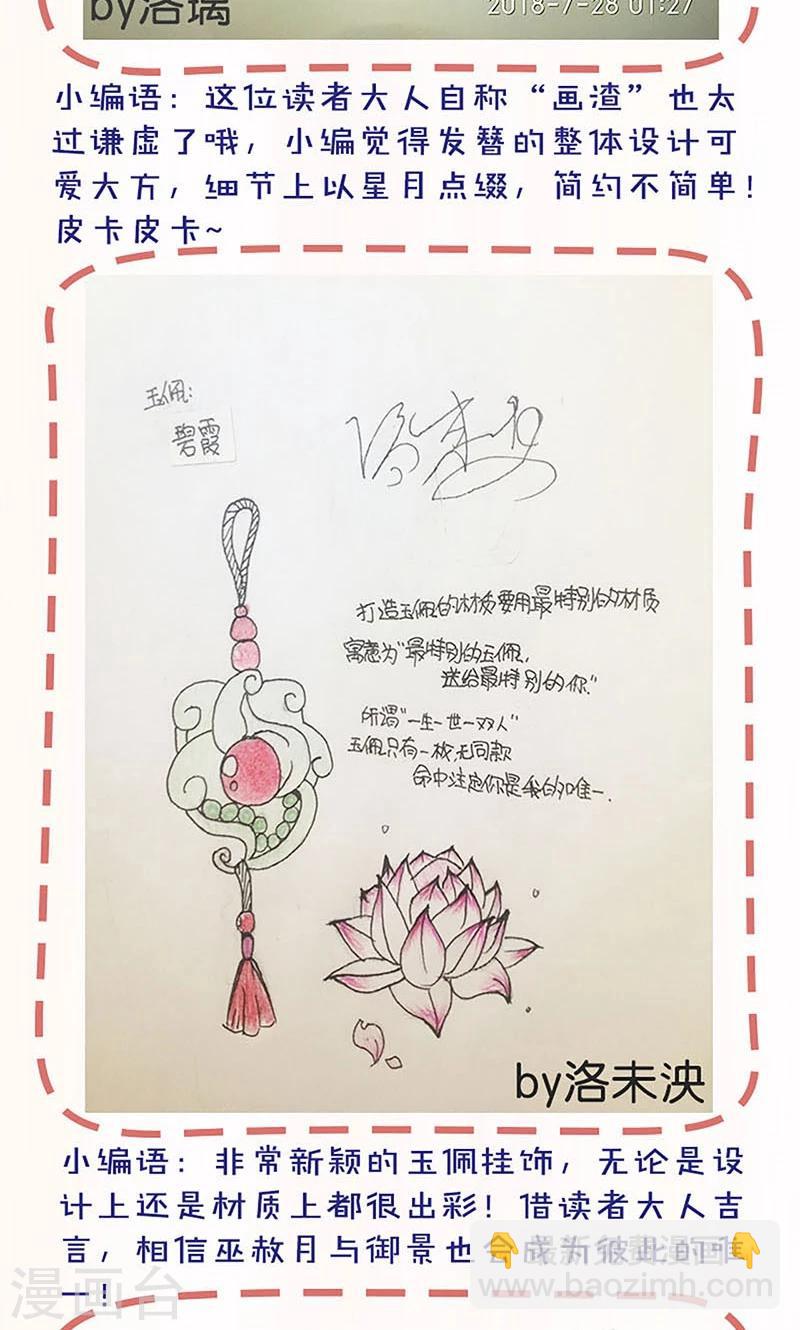 by洛璃
2018-7-28 01:27
小编语：这位读者大人自称“画渣”也太
过谦虚了哦，小编觉得发簪的整体设计可
爱大方，细节上以星月点缀，简约不简单！
皮卡皮卡~
玉佩：
碧霞
洛未央
打造玉佩的材质要用最特别的材质
寓意为“最特别的玉佩，
送给最特别的你”
所谓“一生一世一双人”
玉佩只有一枚，无同款
命中注定你是我的唯一.
by洛未泱
小编语：非常新颖的玉佩挂饰，无论是设
计上还是材质上都很出彩！借读者大人吉
言，相信巫赦月与御景也会成为彼此的唯
一！
漫画台
最新免费漫画
www.baozimh.com